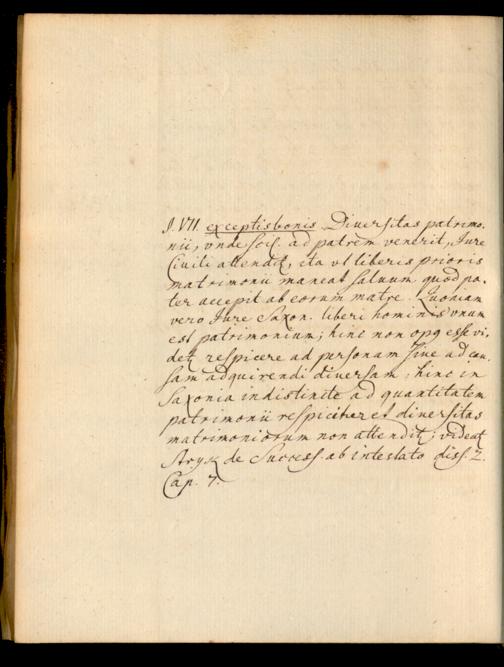 §. VII. exceptis bonis Diversitas patrimo-
nii, unde scis. ad patrem venerit, Jure
Civili attendit, ita vt liberis prioris
matrimonii maneat saluum quod pa-
ter accepit ab eorum matre. Quoniam
vero Jure Saxon. liberi hominis vnum
est patrimonium; hinc non opq esse vi-
det respicere ad personam sive ad cau-
sam adquirendi diversam; hinc in
Saxonia indistincte ad quantitatem
patrimonii respicitur et diuersitas
matrimoniorum non attendit; videat
Stryk de Success. ab intestato diss. 2.
Cap. 7.